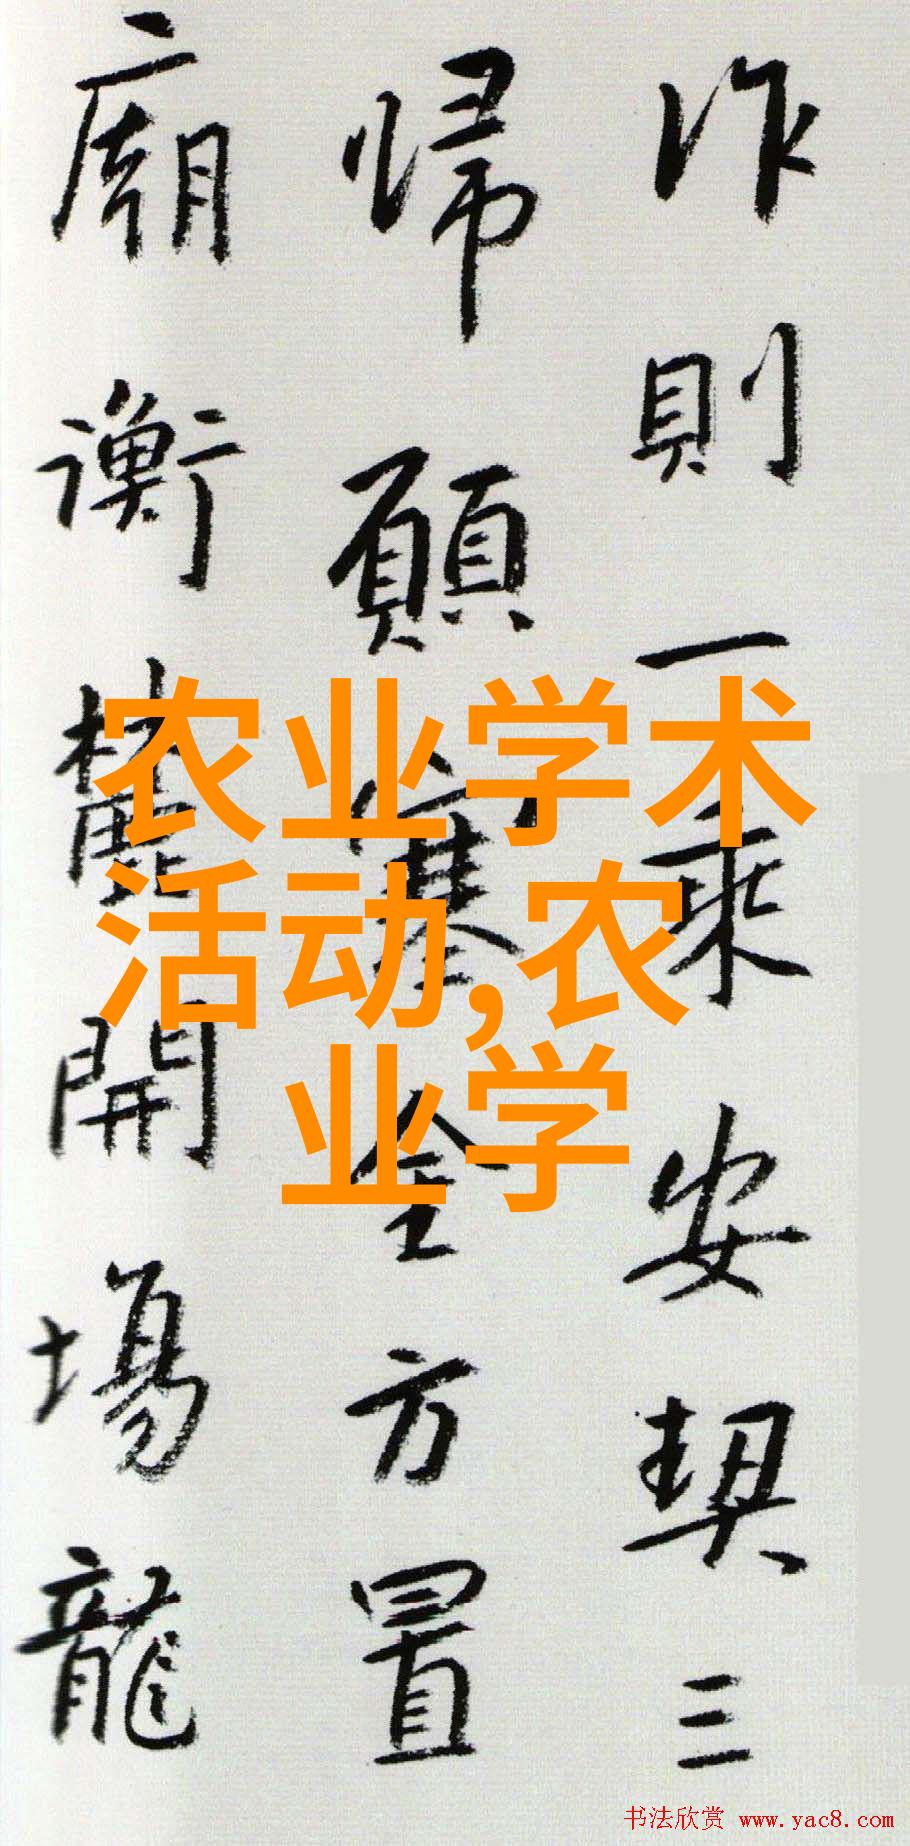 作則一乘安契三
歸願塞全方置
廟衡麓開場龍
农业学术
活动,农
业学
书法欣赏 www.yac8.com